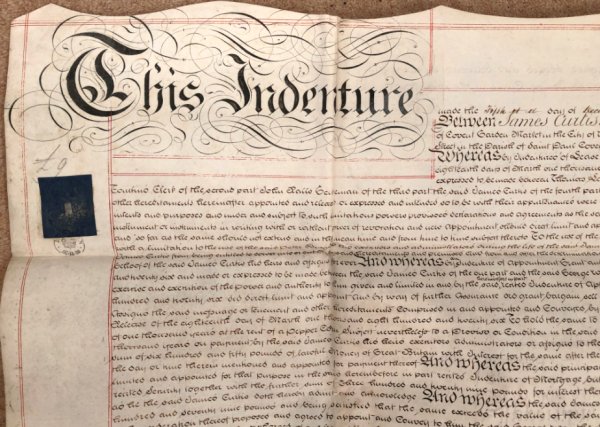 This Indenture
made the day of
Between James Curtis
of Covent Garden Market in the City of
in the Parish of Saint Paul Covent
Whereas by Indenture of Lease
eighteenth days of March one thousand
expressed to be made between Thomas
Clerk of the second part John Gentleman of the third part the said James Curtis of the fourth part
other hereditaments thereinafter appointed and released or expressed and intended so to be with their appurtenances were
intents and purposes and under and subject to such limitations powers provisoes declarations and agreements as the said
instrument or instruments in writing with or without power of revocation and new appointment should direct limit and
and so far as the same should not extend and in the mean time and from time to time subject thereto To the use of the
with a limitation to the use of
James Curtis from being entitled to dower
behoof of the said James Curtis his heirs and assigns for ever And whereas by Indenture of Appointment Grant and
and twenty six and made or expressed to be made between the said James Curtis of the one part and the said George
exercise and execution of the power and authority to him given and limited in and by the said recited Indenture of
hundred and twenty six did direct limit and appoint and by way of further assurance did grant bargain sell
assigns the said messuage or tenement and other hereditaments comprised in and appointed and conveyed by
Release of the eighteenth day of March one thousand eight hundred and twenty six To hold the same to
of one thousand years at the rent of a Pepper Corn Subject nevertheless to a Proviso or Condition in the said
thousand years on payment by the said James Curtis his heirs executors administrators or assigns to the
sum of six hundred and fifty pounds of lawful money of Great Britain with Interest for the same after the
the day or time therein mentioned and appointed for payment thereof And whereas the said principal
limited and appointed for that purpose in the said hereinbefore in part recited Indenture of Mortgage but
recited Security together with the further sum of three hundred and twenty nine pounds for interest
as he the said James Curtis doth hereby admit and acknowledge And whereas the said
hundred and seventy nine pounds and being satisfied that the same exceeds the value of the said
thereof proposed and agreed to appoint and Convey to him the said